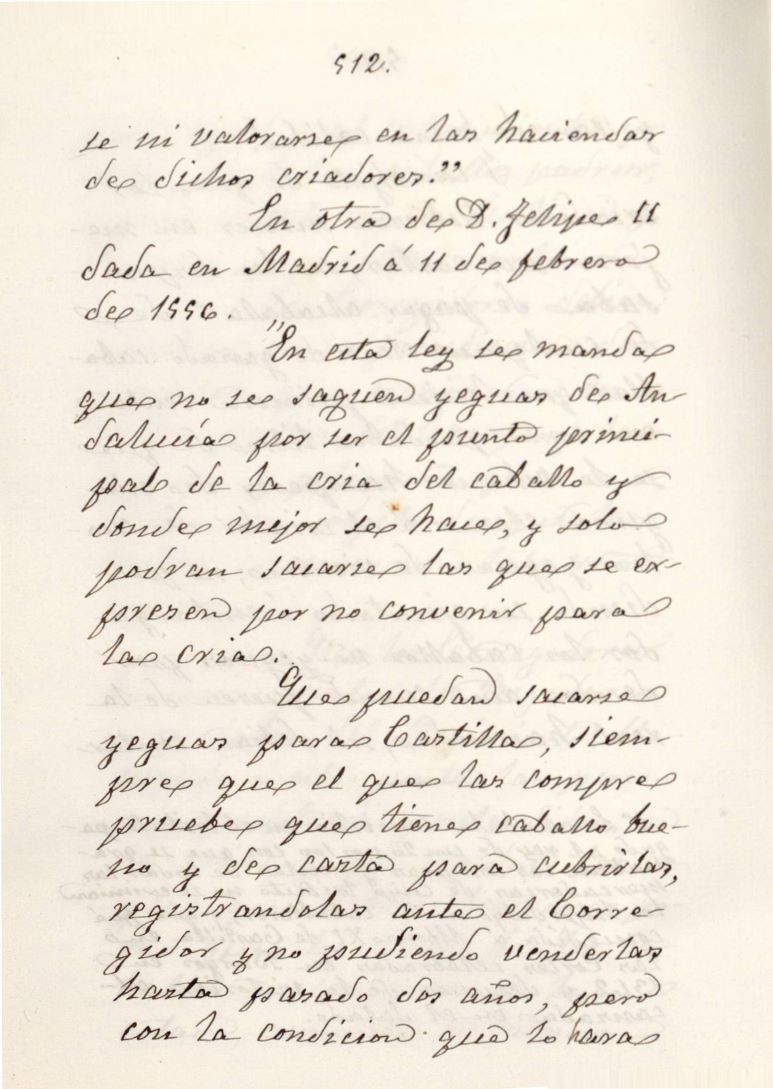 512.
se ni valorarse en las haciendas
de dichos criadores."
En otra de D. Felipe II
dada en Madrid á 11 de febrero
de 1556.
"En esta ley se manda
que no se saquen yeguas de An-
dalucía por ser el punto princi-
pal de la cria del caballo y
donde mejor se hace, y solo
podran sacarse las que se ex-
presen por no convenir para
la cria.
Que puedan sacarse
yeguas para Castilla, siem-
pre que el que las compre
pruebe que tiene caballo bue-
no y de casta para cubrirlas,
registrandolas ante el Corre-
gidor y no pudiendo venderlas
hasta pasado dos años, pero
con la condicion que lo hara